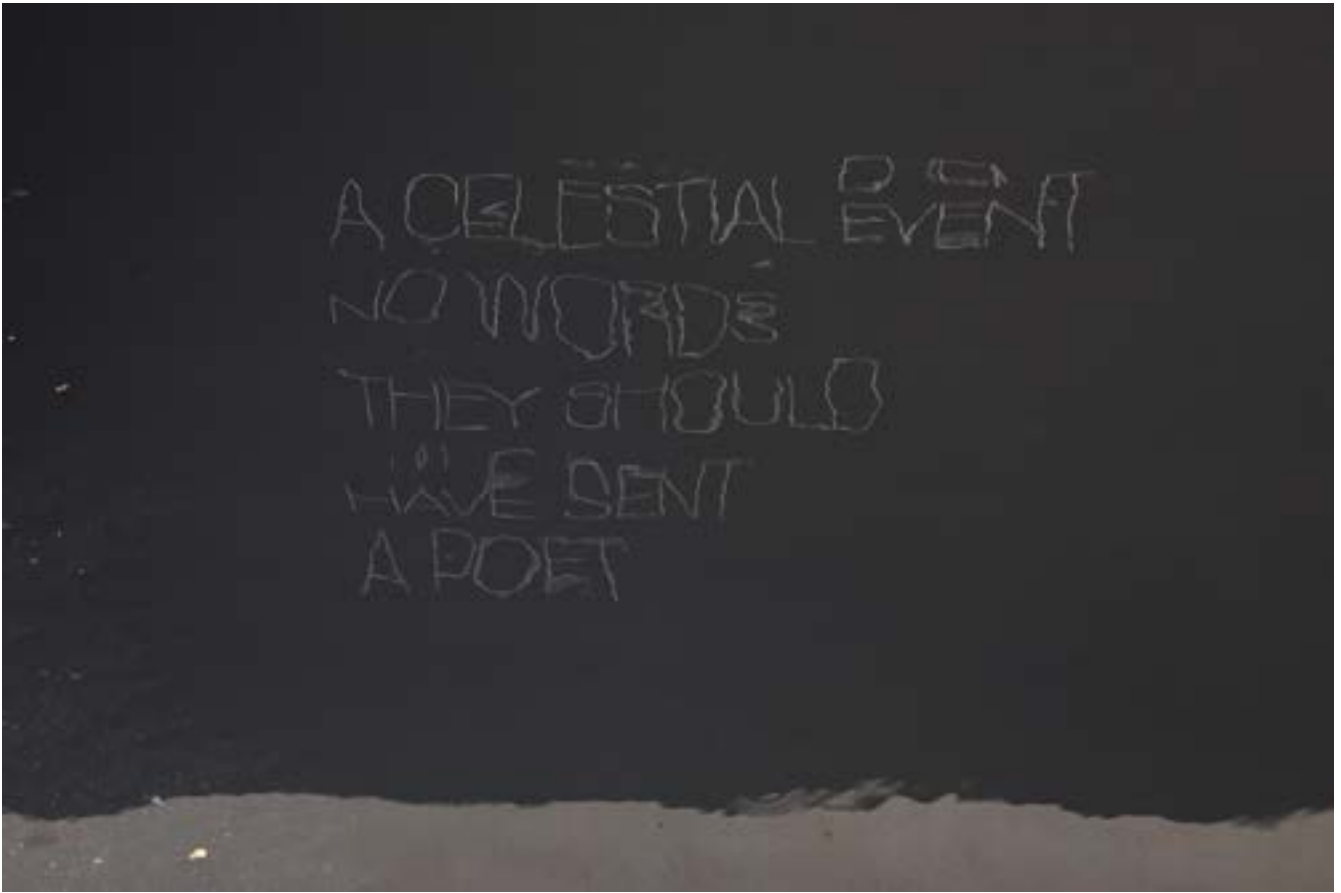 A CELESTIAL EVENT
NO WORDS
THEY SHOULD
HAVE SENT
A POET